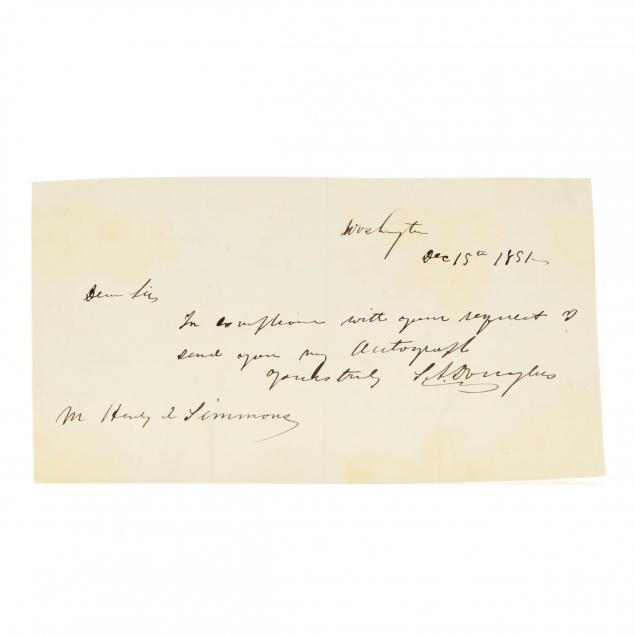 Washington
Dec 15th 1851
Dear Sir
In compliance with your request I
send you my Autograph
Yours truly S. A. Douglas
M Henry Simmons